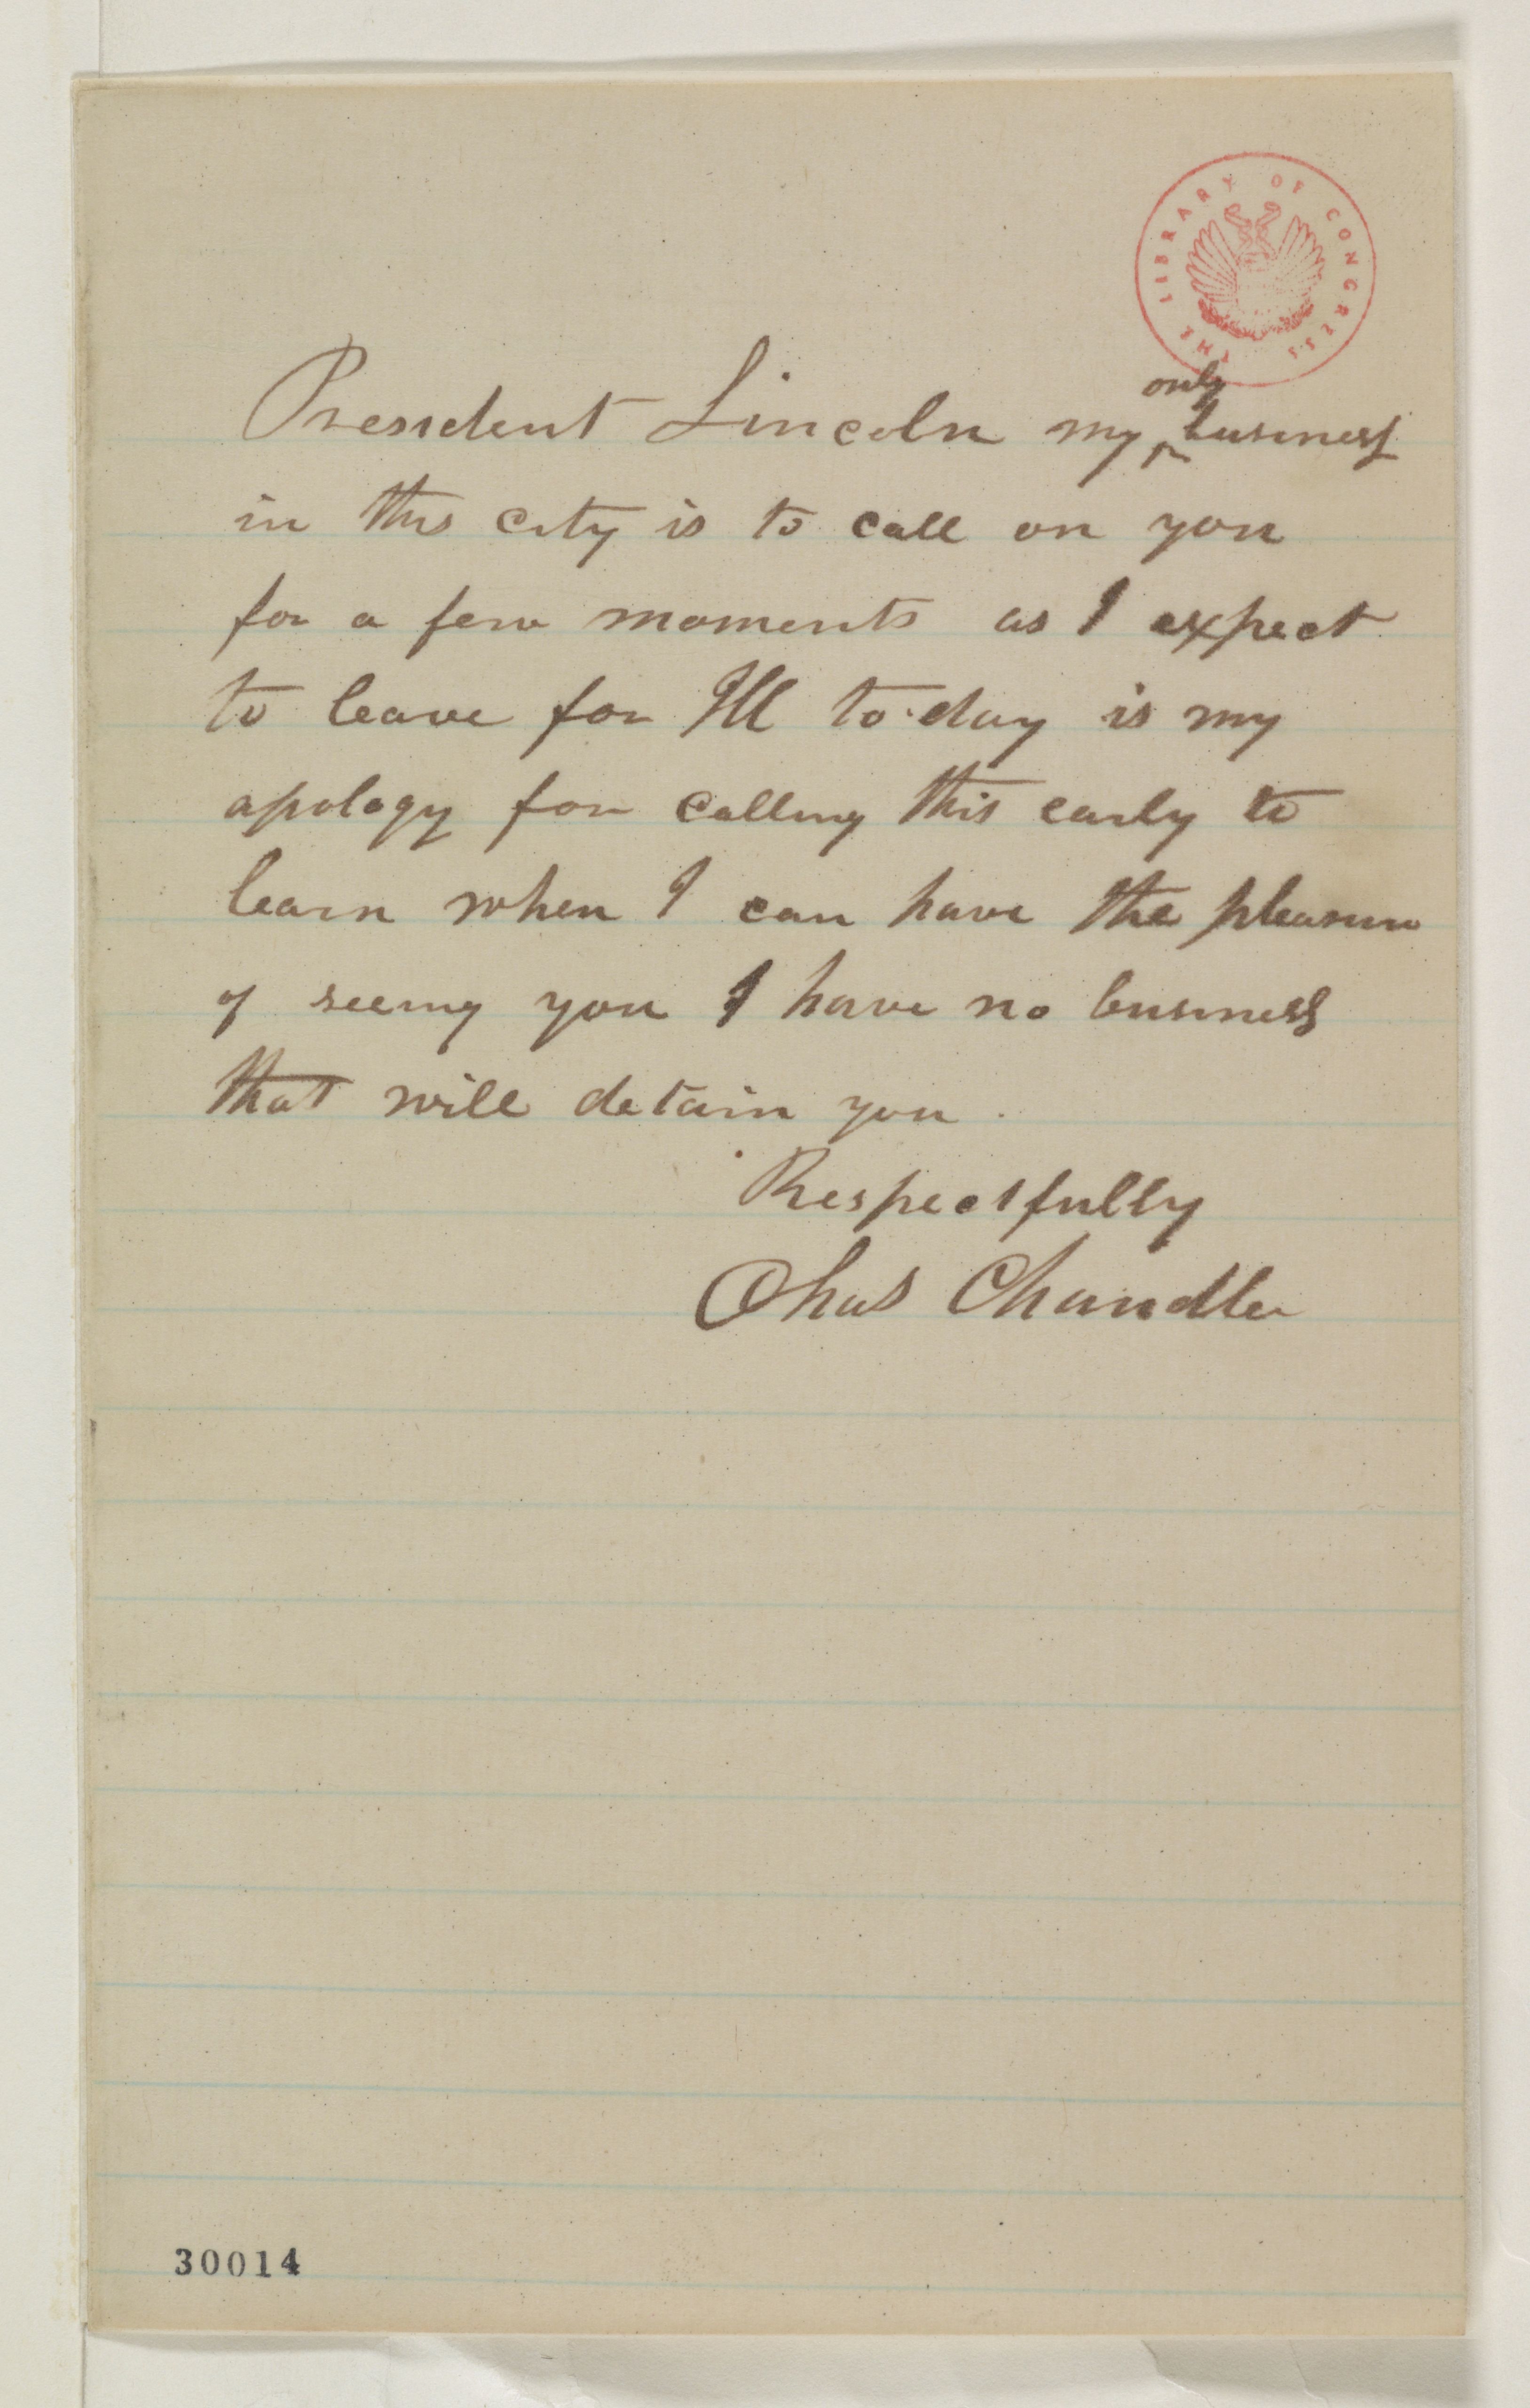 THE LIBRARY OF CONGRESS
only
President Lincoln my ^ business
in this city is to call on you
for a few moments as I expect
to leave for Ill to-day is my
apology for calling this early to
learn when I can have the pleasure
of seeing you I have no business
that will detain you.
Respectfully
Chas Chandler
30014